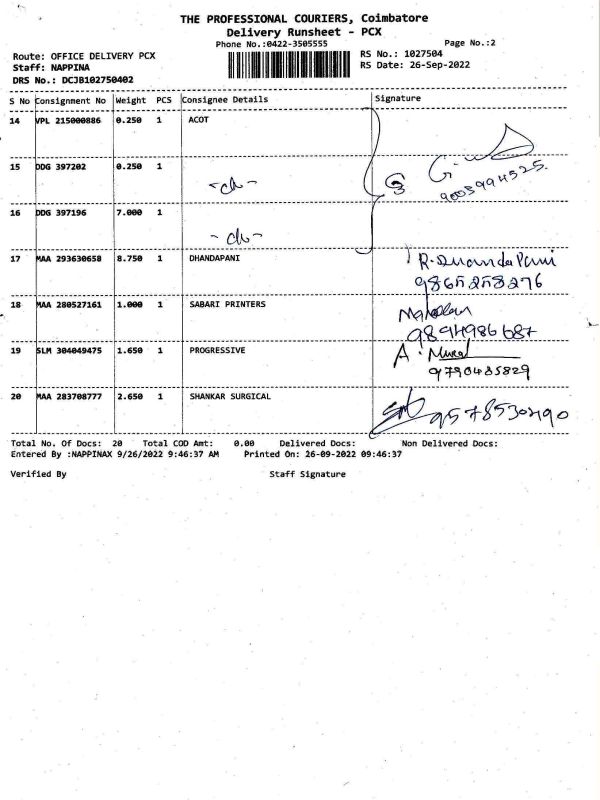 THE PROFESSIONAL COURIERS, Coimbatore
Delivery Runsheet - PCX
Phone No.:0422-3505555 Page No.:2
Route: OFFICE DELIVERY PCX RS No.: 1027504
Staff: NAPPINA RS Date: 26-Sep-2022
DRS No.: DCJB102750402
S No Consignment No Weight PCS Consignee Details Signature
14 VPL 215000886 0.250 1 ACOT
15 DDG 397202 0.250 1
9003994525.
16 DDG 397196 7.000 1
17 MAA 293630658 8.750 1 DHANDAPANI R. Dhandapani
9865258276
18 MAA 280527161 1.000 1 SABARI PRINTERS
9894986687
19 SLM 304049475 1.650 1 PROGRESSIVE
9790435829
20 MAA 283708777 2.650 1 SHANKAR SURGICAL
Total No. Of Docs: 20 Total COD Amt: 0.00 Delivered Docs: Non Delivered Docs:
Entered By :NAPPINAX 9/26/2022 9:46:37 AM Printed On: 26-09-2022 09:46:37
Verified By Staff Signature